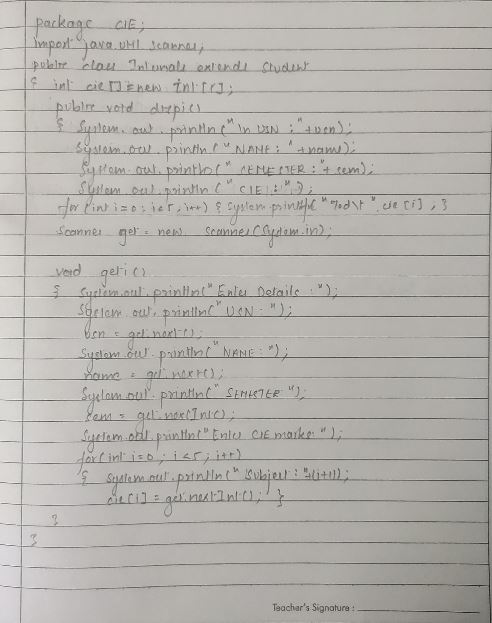 package CIE;
import java.util.scanner;
public class Internals extends Student
{ int cie[]=new int[5];
public void dispi()
{ System.out.println("\n USN : "+usn);
System.out.println("NAME : "+name);
System.out.println("SEMESTER : "+sem);
System.out.println("CIE : ");
for(int i=0; i<5; i++) { System.printf("%d\t", cie[i]; }
Scanner get = new Scanner(System.in);
void geti()
{ System.out.println("Enter Details : ");
System.out.println("USN : ");
usn = get.next();
System.out.println("NAME : ");
name = get.next();
System.out.println("SEMESTER : ");
sem = get.nextInt();
System.out.println("Enter CIE marks : ");
for(int i=0; i<5; i++)
{ System.out.println("Subject : "+(i+1));
cie[i] = get.nextInt(); }
}
}
Teacher's Signature :